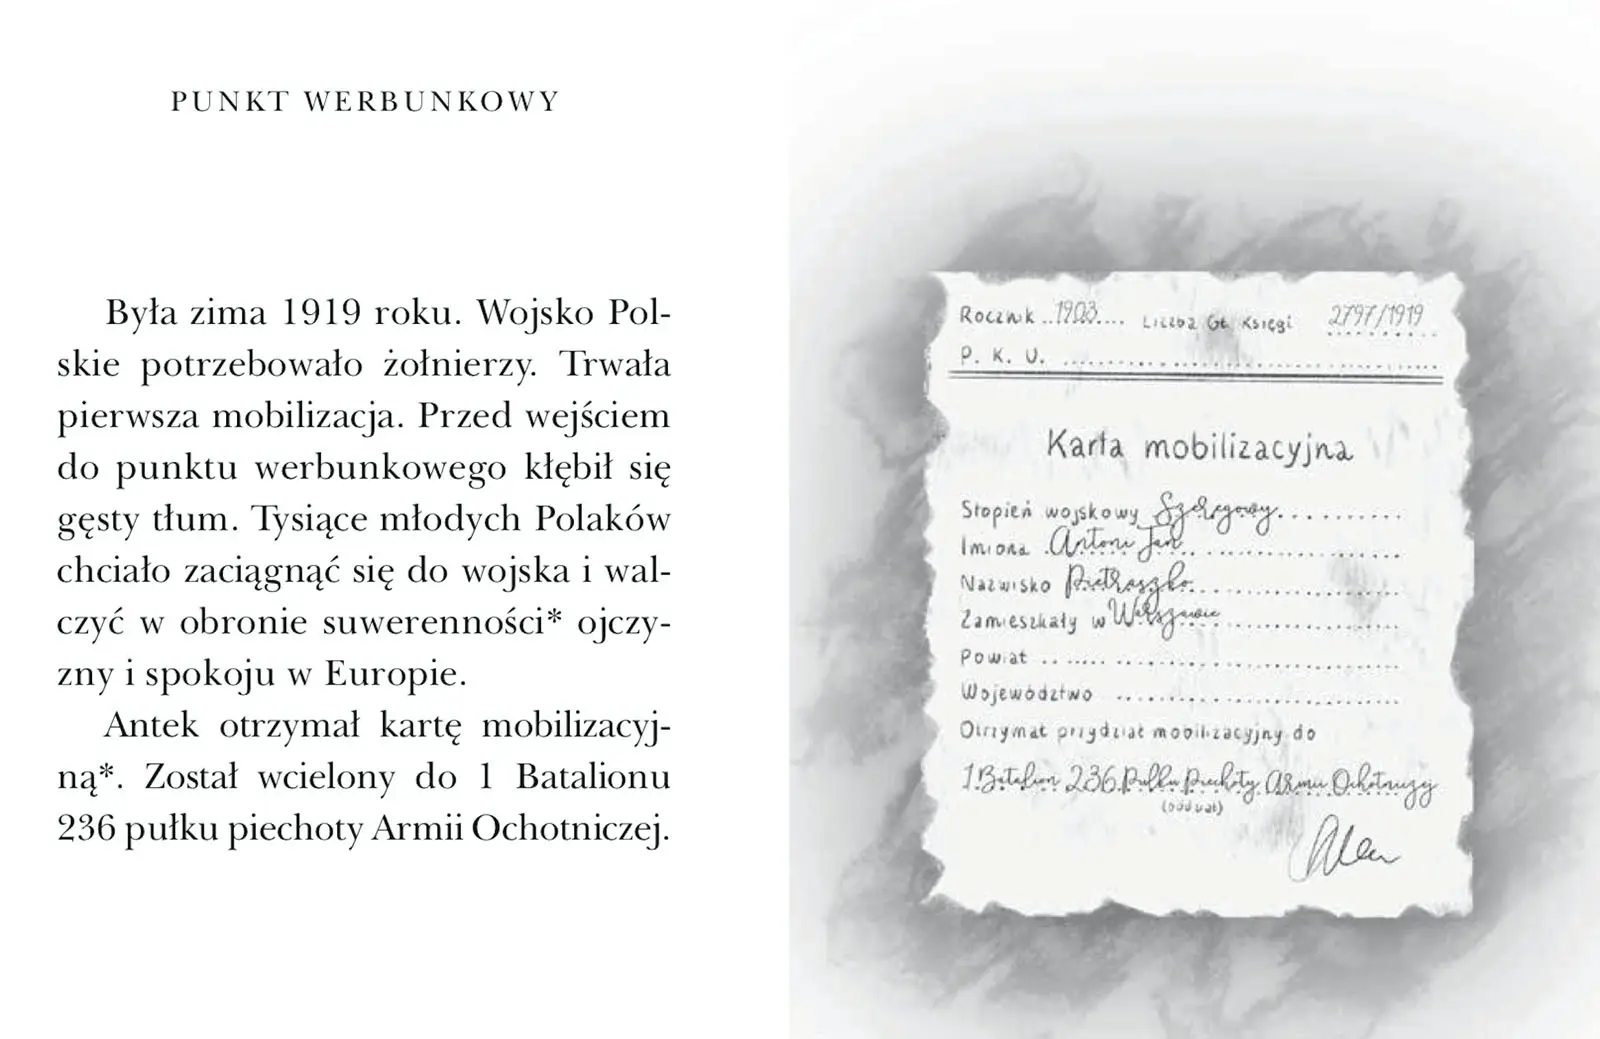 PUNKT WERBUNKOWY
Była zima 1919 roku. Wojsko Pol-
skie potrzebowało żołnierzy. Trwała
pierwsza mobilizacja. Przed wejściem
do punktu werbunkowego kłębił się
gęsty tłum. Tysiące młodych Polaków
chciało zaciągnąć się do wojska i wal-
czyć w obronie suwerenności* ojczy-
zny i spokoju w Europie.
Antek otrzymał kartę mobilizacyj-
ną*. Został wcielony do 1 Batalionu
236 pułku piechoty Armii Ochotniczej.
Rocznik 1903 Liczba Gł. Księgi 2797/1919
P. K. U.
Karta mobilizacyjna
Stopień wojskowy Szeregowy
Imiona Antoni Jan
Nazwisko Pietraszko
Zamieszkały w Warszawie
Powiat
Województwo
Otrzymał przydział mobilizacyjny do
1 Batalion 236 Pułku Piechoty Armii Ochotniczej
(oddział)